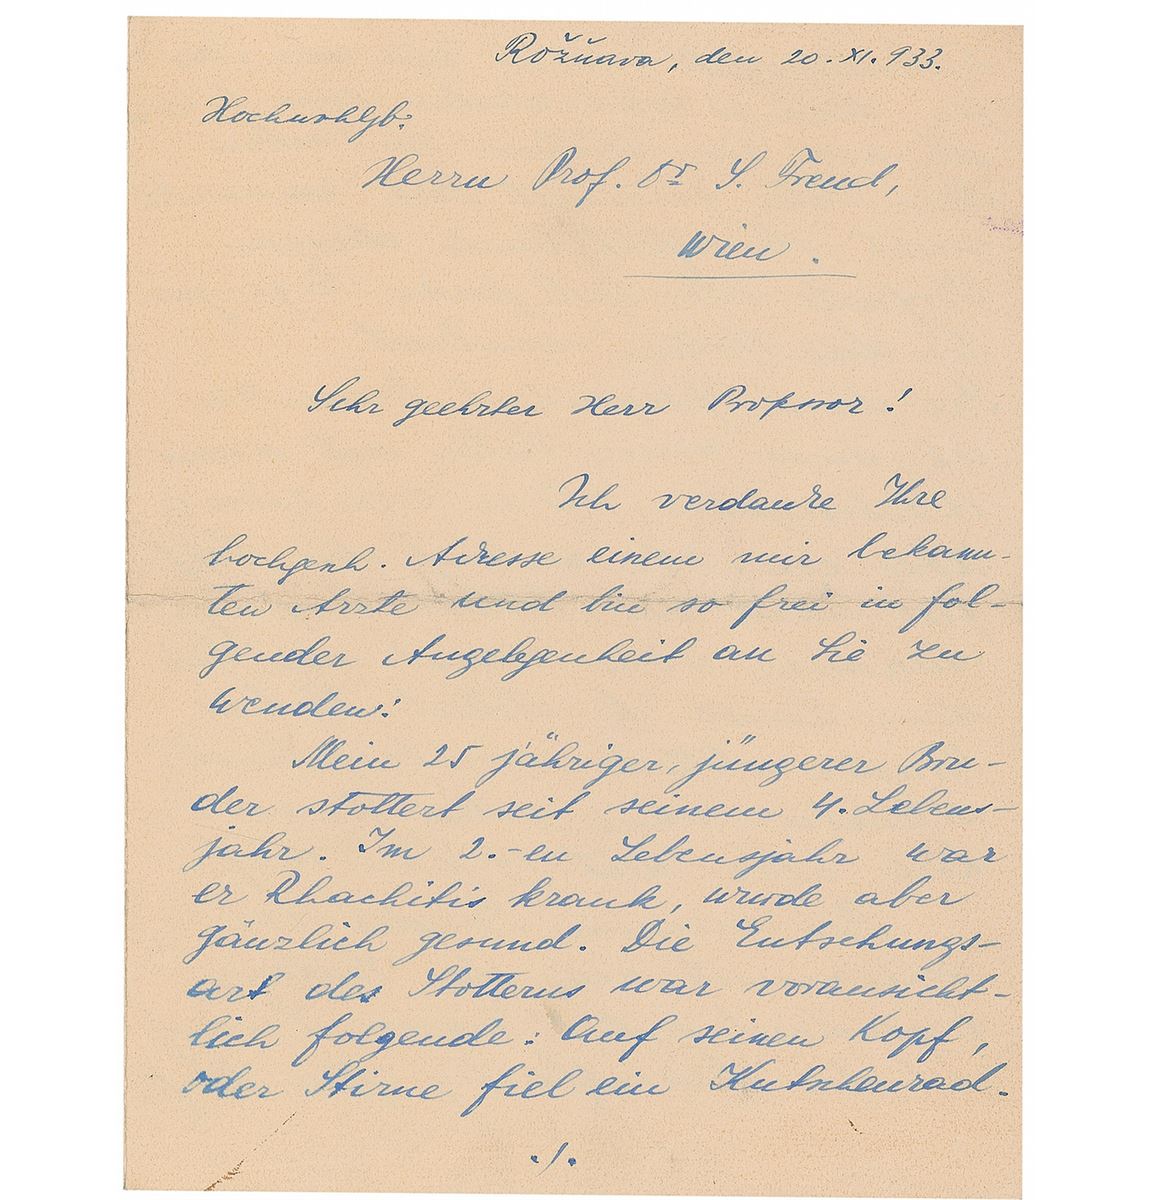 Rožňava, den 20. XI. 933.
Hochwohlgb:
Herrn Prof. Dr S. Freud,
Wien.
Sehr geehrter Herr Professor!
Ich verdanke Ihre
hochgeeh. Adresse einem mir bekann-
ten Arzte und bin so frei in fol-
gender Angelegenheit an Sie zu
wenden:
Mein 25 jähriger, jüngerer Bru-
der stottert seit seinem 4. Lebens-
jahr. Im 2.-en Lebensjahr war
er Rhachitis krank, wurde aber
gänzlich gesund. Die Entsehungs-
art des Stotterns war voraussicht-
lich folgende: Auf seinen Kopf,
oder Stirne fiel ein Kutschenrad.
./.